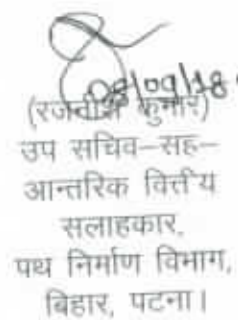 08/09/18
(रजनीश कुमार)
उप सचिव-सह-
आन्तरिक वित्तीय
सलाहकार,
पथ निर्माण विभाग,
बिहार, पटना।